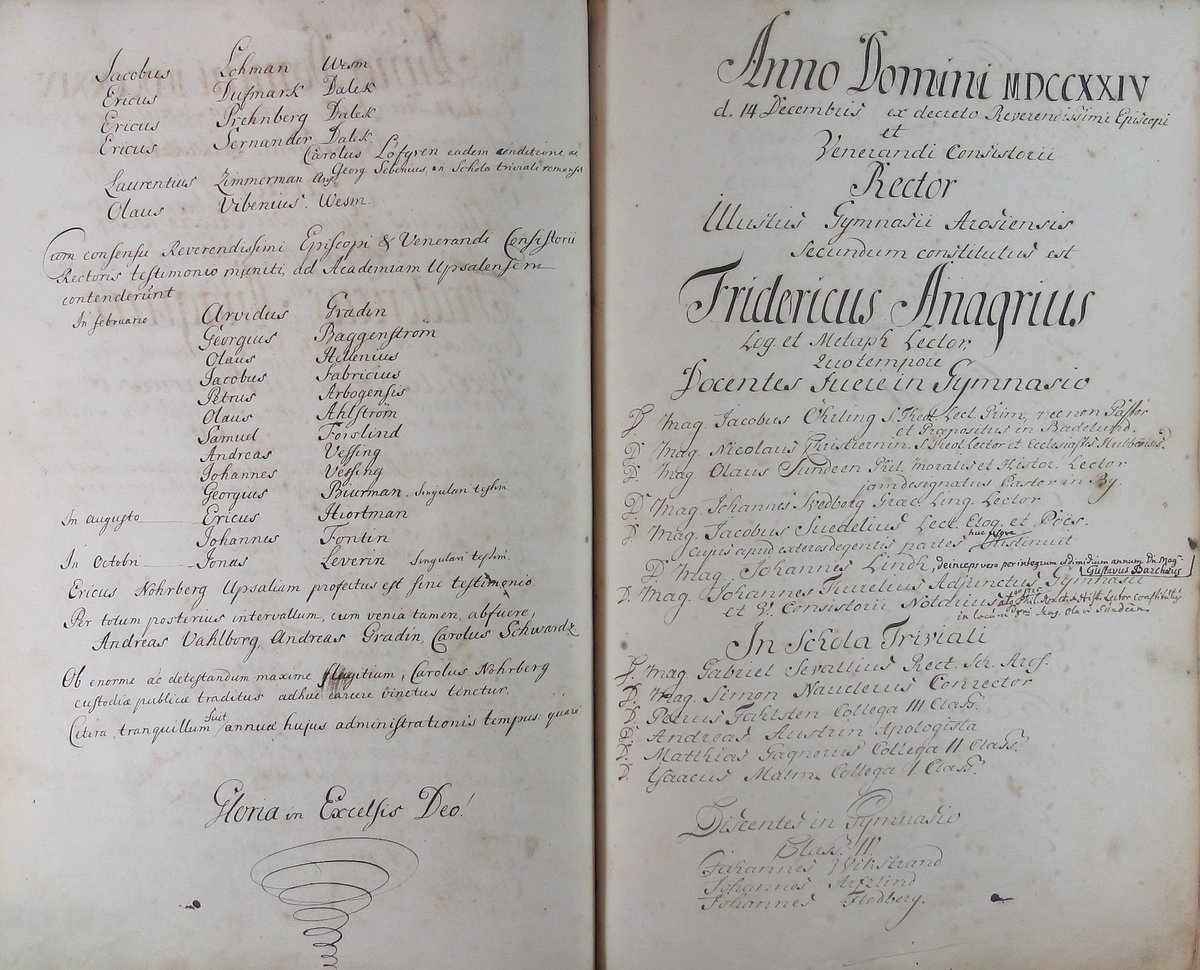 Jacobus Lohman Wesm
Ericus Dufmark Dalek
Ericus Prehnberg Dalek
Ericus Sernander Dalek
Carolus Löfgren eadem conditione ac
Georg. Sebenius, in Schola triviali
Laurentius Zimmerman
Olaus Vibenius. Wesm.
Cum consensu Reverendissimi Episcopi & Venerandi Consistorii
Rectoris testimonio muniti, ad Academiam Upsalensem
contenderunt
In februario Arvidus Gradin
Georgius Baggenström
Olaus Helenius
Jacobus Fabricius
Petrus Arbogensis
Olaus Ahlström
Samuel Forslind
Andreas Vessing
Johannes Vessing
Georgius Biurman. Singulari testim
In augusto Ericus Hiortman
Johannes Fontin
In Octobri Jonas Leverin Singulari testim.
Ericus Nohrberg Upsalium profectus est sine testimonio.
Per totum posterius intervallum, cum venia tamen, abfuere,
Andreas Vahlborg, Andreas Gradin, Carolus Schwardz
Ob enorme ac detestandum maxime flagitium, Carolus Nohrberg
custodiæ publicæ traditus adhuc carcere vinctus tenetur.
Cetera tranquillum fuit annuæ hujus administrationis tempus: quare
Gloria in Excelsis Deo!
Anno Domini MDCCXXIV
d. 14 Decembris ex decreto Reverendissimi Episcopi
et
Venerandi Consistorii
Rector
Illustris Gymnasii Arosiensis
secundum constitutus est
Fridericus Anagrius
Log. et Metaph Lector
Quo tempore
Docentes Fuere in Gymnasio
D. Mag. Jacobus Öhrling S. Theol. Lect. Prim. nec non Pastor
et Præpositus in Badelund.
D. Mag. Nicolaus Christiernin S. Theol. Lector et Ecclesiastes
D. Mag. Olaus Sundeen Phil. Moralis et Histor. Lector
jam designatus Pastor in By.
D. Mag. Johannes Svedberg Græc. Ling. Lector
D. Mag. Jacobus Suedelius Lect. Eloq. et Poës.
cujus apud exteros degentis partes huc usque sustinuit
D. Mag. Johannes Lindh, deinceps vero per integrum et dimidium annum Dn. Mag.
Gustavus Barchæus
D. Mag. Johannes Aurelius Adjunctus Gymnasii
et V. Consistorii Notarius
in locum Dni Mag. Olavi Sundeen.
In Schola Triviali
D. Mag. Gabriel Sevallius Rect. Sch. Aros.
D. Mag. Simon Nauclerus Conrector
D. Petrus Fahlsten Collega III Class.
D. Andreas Austrin Apologista
D. Matthias Gagnerus Collega II Class.
D. Ysaacus Malm. Collega I Class.
Discentes in Gymnasio
Class. IV.
Johannes Wikstrand
Johannes
Johannes Flodberg.